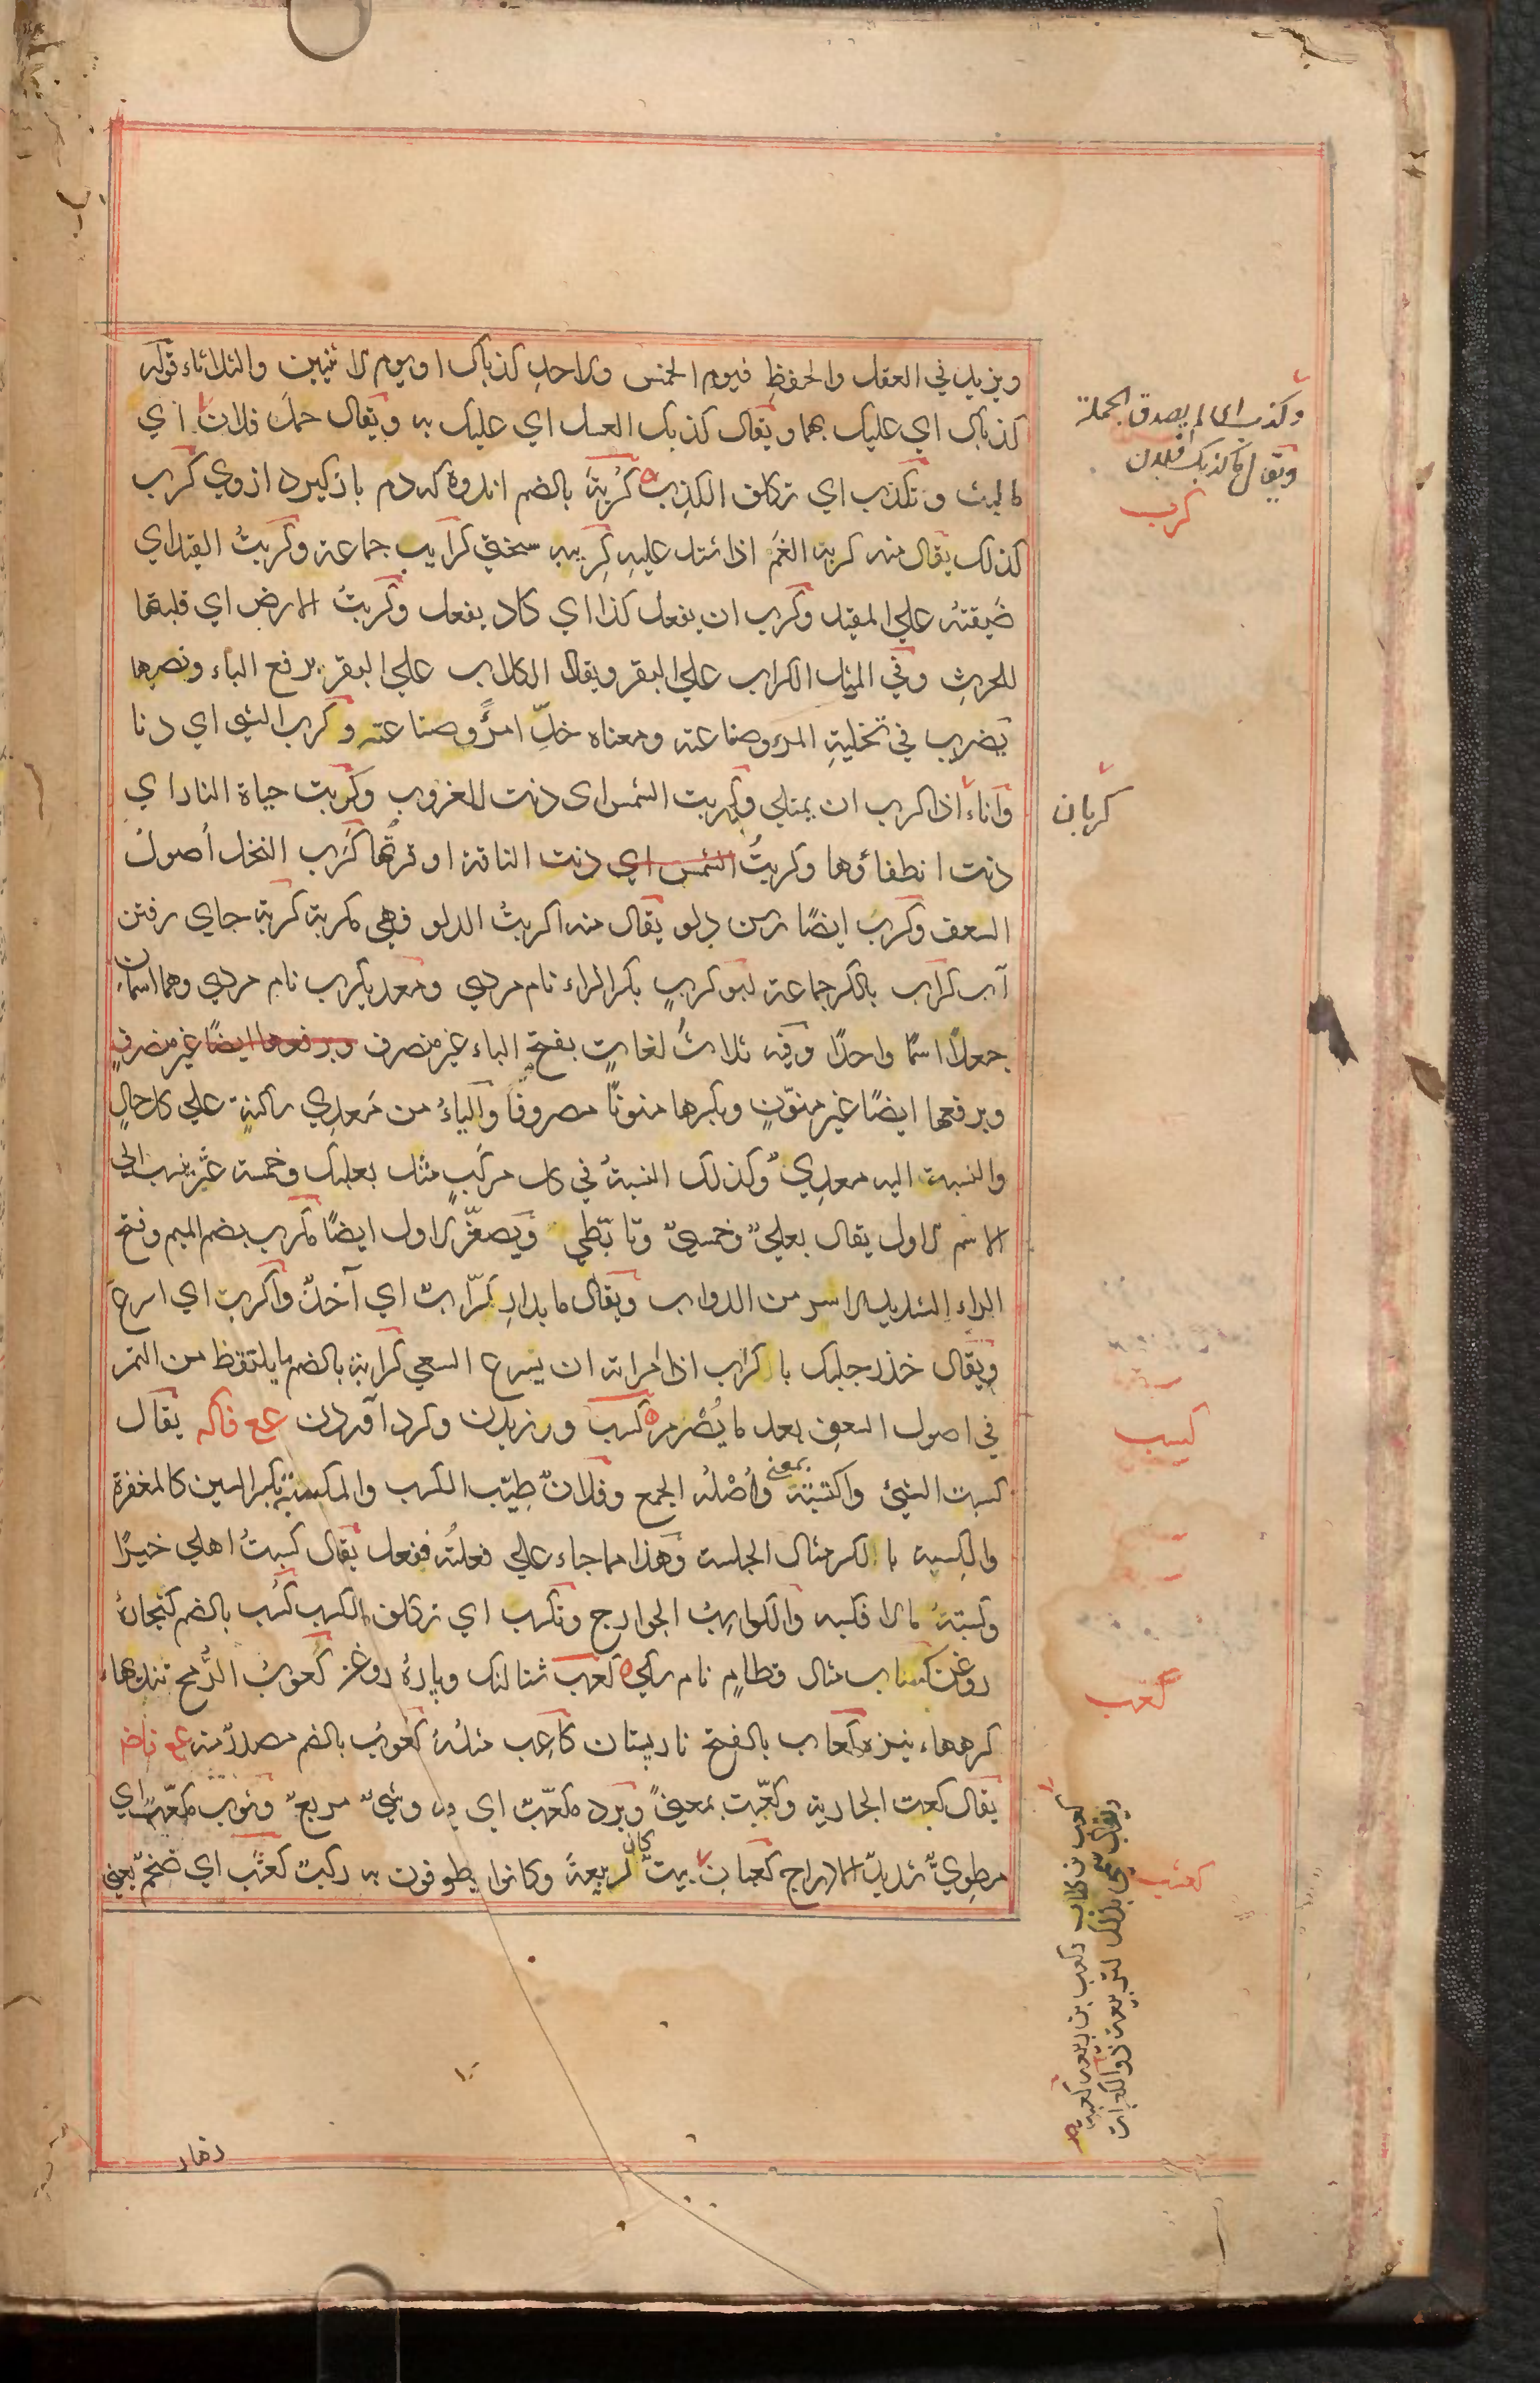 ويزيد في العقل والحفظ فيوم الخمس والاحد كذباك او يوم الاثنين والثلاثاء قوله
كذباك اي عليك بهما ويقال كذبك العسل اي عليك به ويقال حمل فلان اي
لم يلبث وتكذب اي تكلف الكذب كُربة بالضم اندوه كه دم باز كيرد ازوي كرب
كذلك يقال منه كربه الغم اذا اشتد عليه كريبه سختي كرايب جماعة وكربتُ القيد اي
ضيقته علي المقيد وكرب ان يفعل كذا اي كاد يفعل وكربتُ الارض اي قلبتها
للحرث وفي المثل الكراب علي البقر ويقال الكلاب علي البقر برفع الباء ونصبها
يضرب في تخلية المرء وصناعته ومعناه خلِّ امرأً وصناعته وكرب الشي اي دنا
واناء اذا كرب ان يمتلي وكربت الشمس اي دنت للغروب وكربت حياة النار اي
دنت انطفاؤها وكربتُ الشمس اي دنت الناقة اوقرتُها كَرَب النخل اُصول
السعف وكرب ايضًا رسن دلو يقال منه اكربتُ الدلو فهي مكربة كربة جاي رفتن
آب كراب بالكسر جماعة ابو كربٍ بكسر الراء نام مردي ومعديكرب نام مردي وهما اسمان
جعلا اسمًا واحدًا وفيه ثلاث لغاتٍ بفتح الباء غير منصرف وبرفعها ايضًا غير منصرفٍ
وبرفعها ايضًا غير منوّنٍ وبكسرها منونًا مصروفًا والياءُ من مَعدِي ساكنة علي كل حالٍ
والنسبة اليه معدِيٌ وكذلك النسبةُ في كل مركبٍ مثل بعلبك وخمسة عشر ينسب الي
الاسم الاول يقال بعليٌ وخمسيٌ وتابّطي ويصغّر الاول ايضًا مكرب بضم الميم وفتح
الراء الشديد الاسر من الدواب ويقال ما بالدار كرّاب اي آحدٌ واكربت اي اسرع
ويقال خذ رجليك باكراب اذا امراته ان يسرع السعي كرابة بالضم ما يلتقط من التمر
في اصول السعف بعد ما يُصْرم كسب ورزيدن وكرد آوردن عع فاكه يقال
كسبت الشي واكتسبته بمعني واُصْلهُ الجمع وفلانٌ طيّب الكسب والمكسبة بكسر السين كالمغفرة
والكِسبة بالكسر مثال الجلسة وهذا مما جاء علي فعلتُه ففعل يقال كسبتُ اهلي خيرًا
وكسبتهُ مالا فكسبه والكواسب الجوارح وتكسب اي تكلف الكسب كُسب بالضم كنجارهٔ
روغن كساب مثال قطامِ نام سكي كعب شتالنك وپارهٔ روغن كُعوبُ الرُّمح بندهاء
كرههاء نيزه كعاب بالفتح نارپستان كاعِب مثلهُ كعوبُ بالضم مصدرٌ منه عع فاخر
يقال كعبت الجارية وكعّبت بمعنيً وبرد مكعّبٌ اي فيه وشيٌ مربعٌ وثوب مكعّبٌ اي
مطويٌّ شديدُ الادراج كعبان بيتٌ كان لربيعة وكانوا يطوفون به ركبٌ كعثبٌ اي ضخمٌ يعني
وكذب اي لم يصدق الحملة
ويقال ما كذبك فلان
كرب
كربان
كسب
كعب
كعثب
كعب بن كلاب وكعب بن ربيعة كعبة
سُمّي بذلك لتربيعه ذو الكعبات
دفار